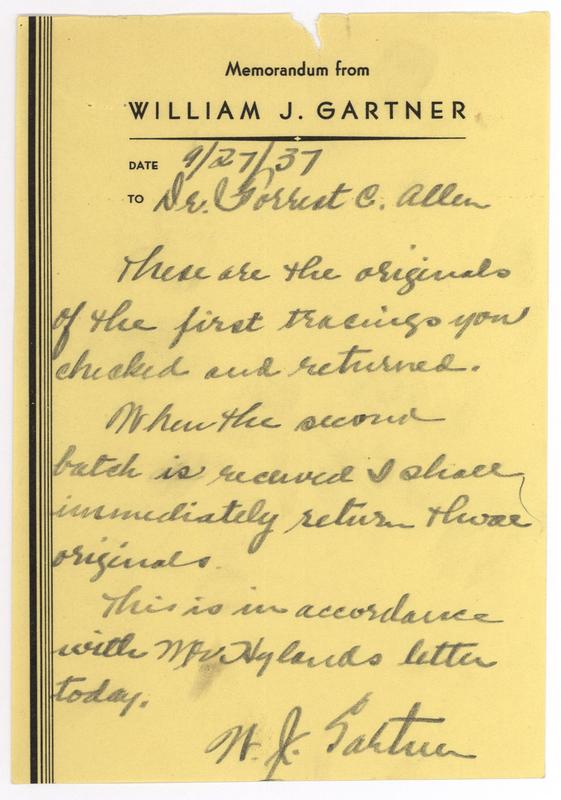 Memorandum from
WILLIAM J. GARTNER
DATE 9/27/37
TO Dr. Forrest C. Allen
These are the originals
of the first tracings you
checked and returned.
When the second
batch is received I shall
immediately return those
originals.
This is in accordance
with Mr. Hylands letter
today.
W. J. Gartner